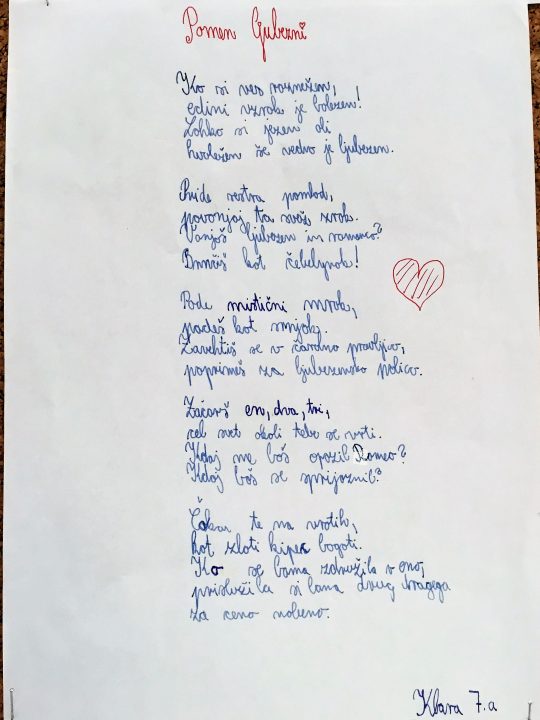 Pomen ljubezni
Ko si ves raznežen,
edini vzrok je bolezen!
Lahko si jezen ali
hvaležen še vedno je ljubezen.
Pride sestra pomlad,
povonjaj ta svež zrak.
Vonjaš ljubezen in romanco?
Brnčiš kot čebelnjak!
Pade mistični mrak,
padeš kot smjok.
Zavrtiš se v čarno pravljico,
poprimeš za ljubezensko palico.
Začaraš en, dva, tri,
cel svet okoli tebe se vrti.
Kdaj me boš opazil Romeo?
Kdaj boš se sprijaznil?
Čakam te na vratih,
kot zlati kipec bogati.
Ko se bama združila v eno,
prislužila si bama drug dragega
za ceno nobeno.
Klara 7.a